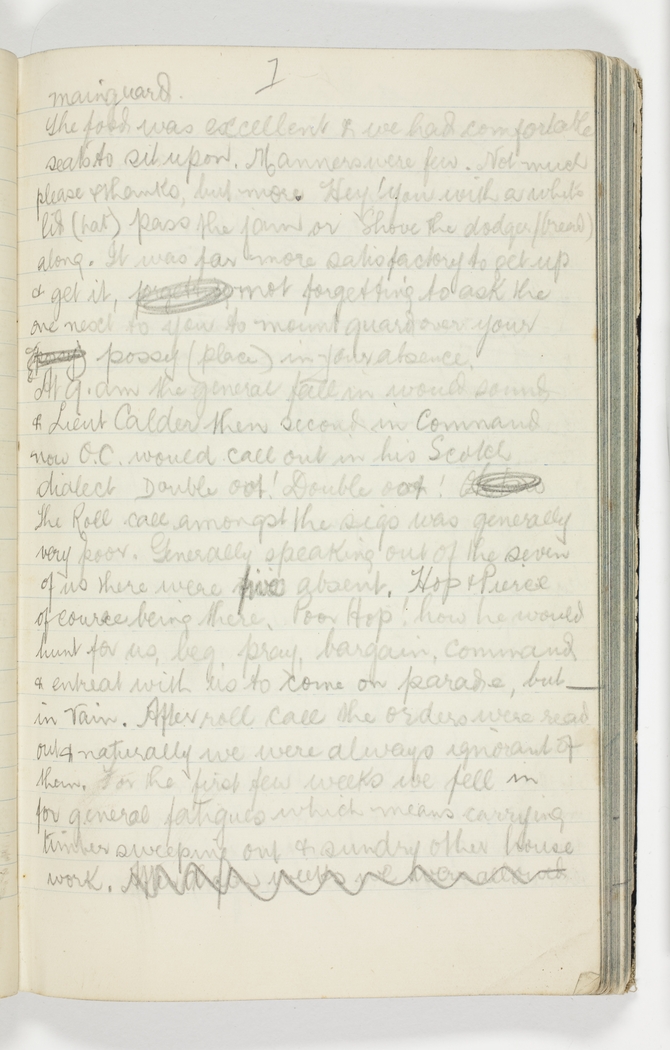 7
mainguard.
The food was excellent & we had comfortable
seats to sit upon. Manners were few. Not much
please & thanks, but more Hey! you with a white
lid (hat) pass the jam or Shove the dodger (bread)
along. It was far more satisfactory to get up
& get it, not forgetting to ask the
one next to you to mount guard over your
possy (place) in your absence.
At 9. am the general fall in would sound
& Lieut Calder then second in Command
now O.C. would call out in his Scotch
dialect Double oot! Double oot!
The Roll call amongst the sigs was generally
very poor. Generally speaking out of the seven
of us there were five absent. Hop & Pierce
of course being there. Poor Hop! how he would
hunt for us, beg, pray, bargain, command
& entreat with us to come on parade, but —
in vain. After roll call the orders were read
out & naturally we were always ignorant of
them. For the first few weeks we fell in
for general fatigues which means carrying
timber sweeping out & sundry other house
work. After a few weeks we were allowed